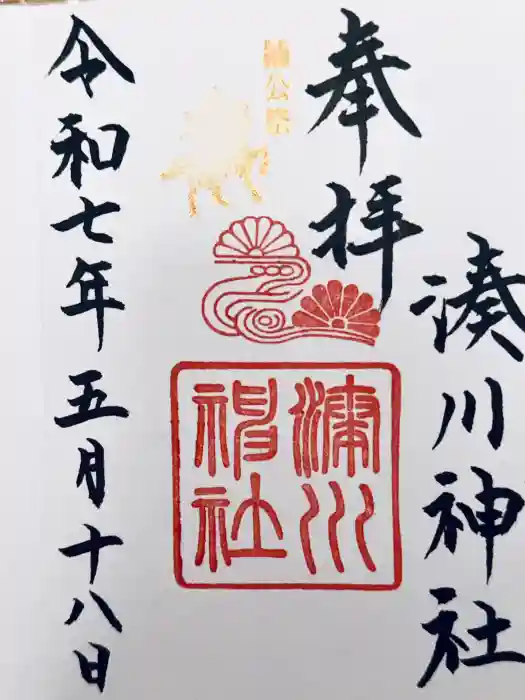 奉拝
湊川神社
楠公祭
湊川神社
令和七年五月十八日